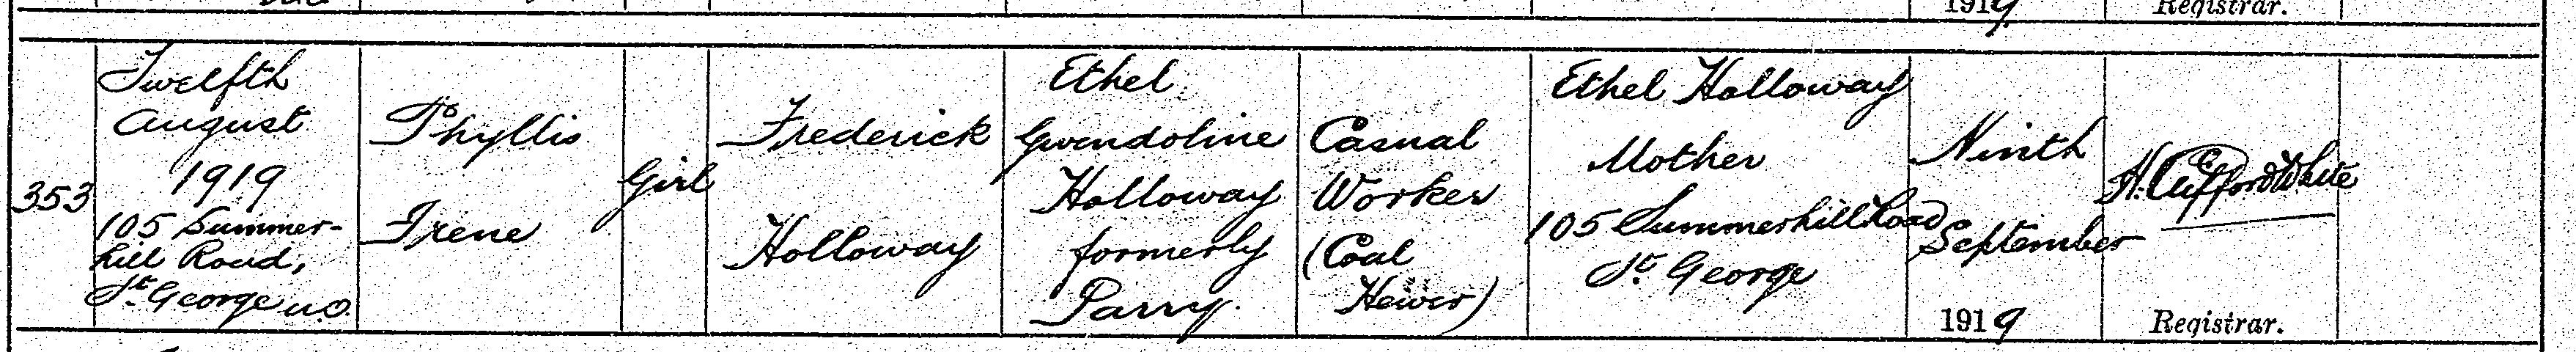 1919
Registrar.
353
Twelfth
August
1919
105 Summer-
hill Road,
St. George U.D.
Phyllis
Irene
Girl
Frederick
Holloway
Ethel
Gwendoline
Holloway
formerly
Parry.
Casual
Worker
(Coal
Hewer)
Ethel Holloway
Mother
105 Summerhill Road
St. George
Ninth
September
1919
H. Clifford White
Registrar.